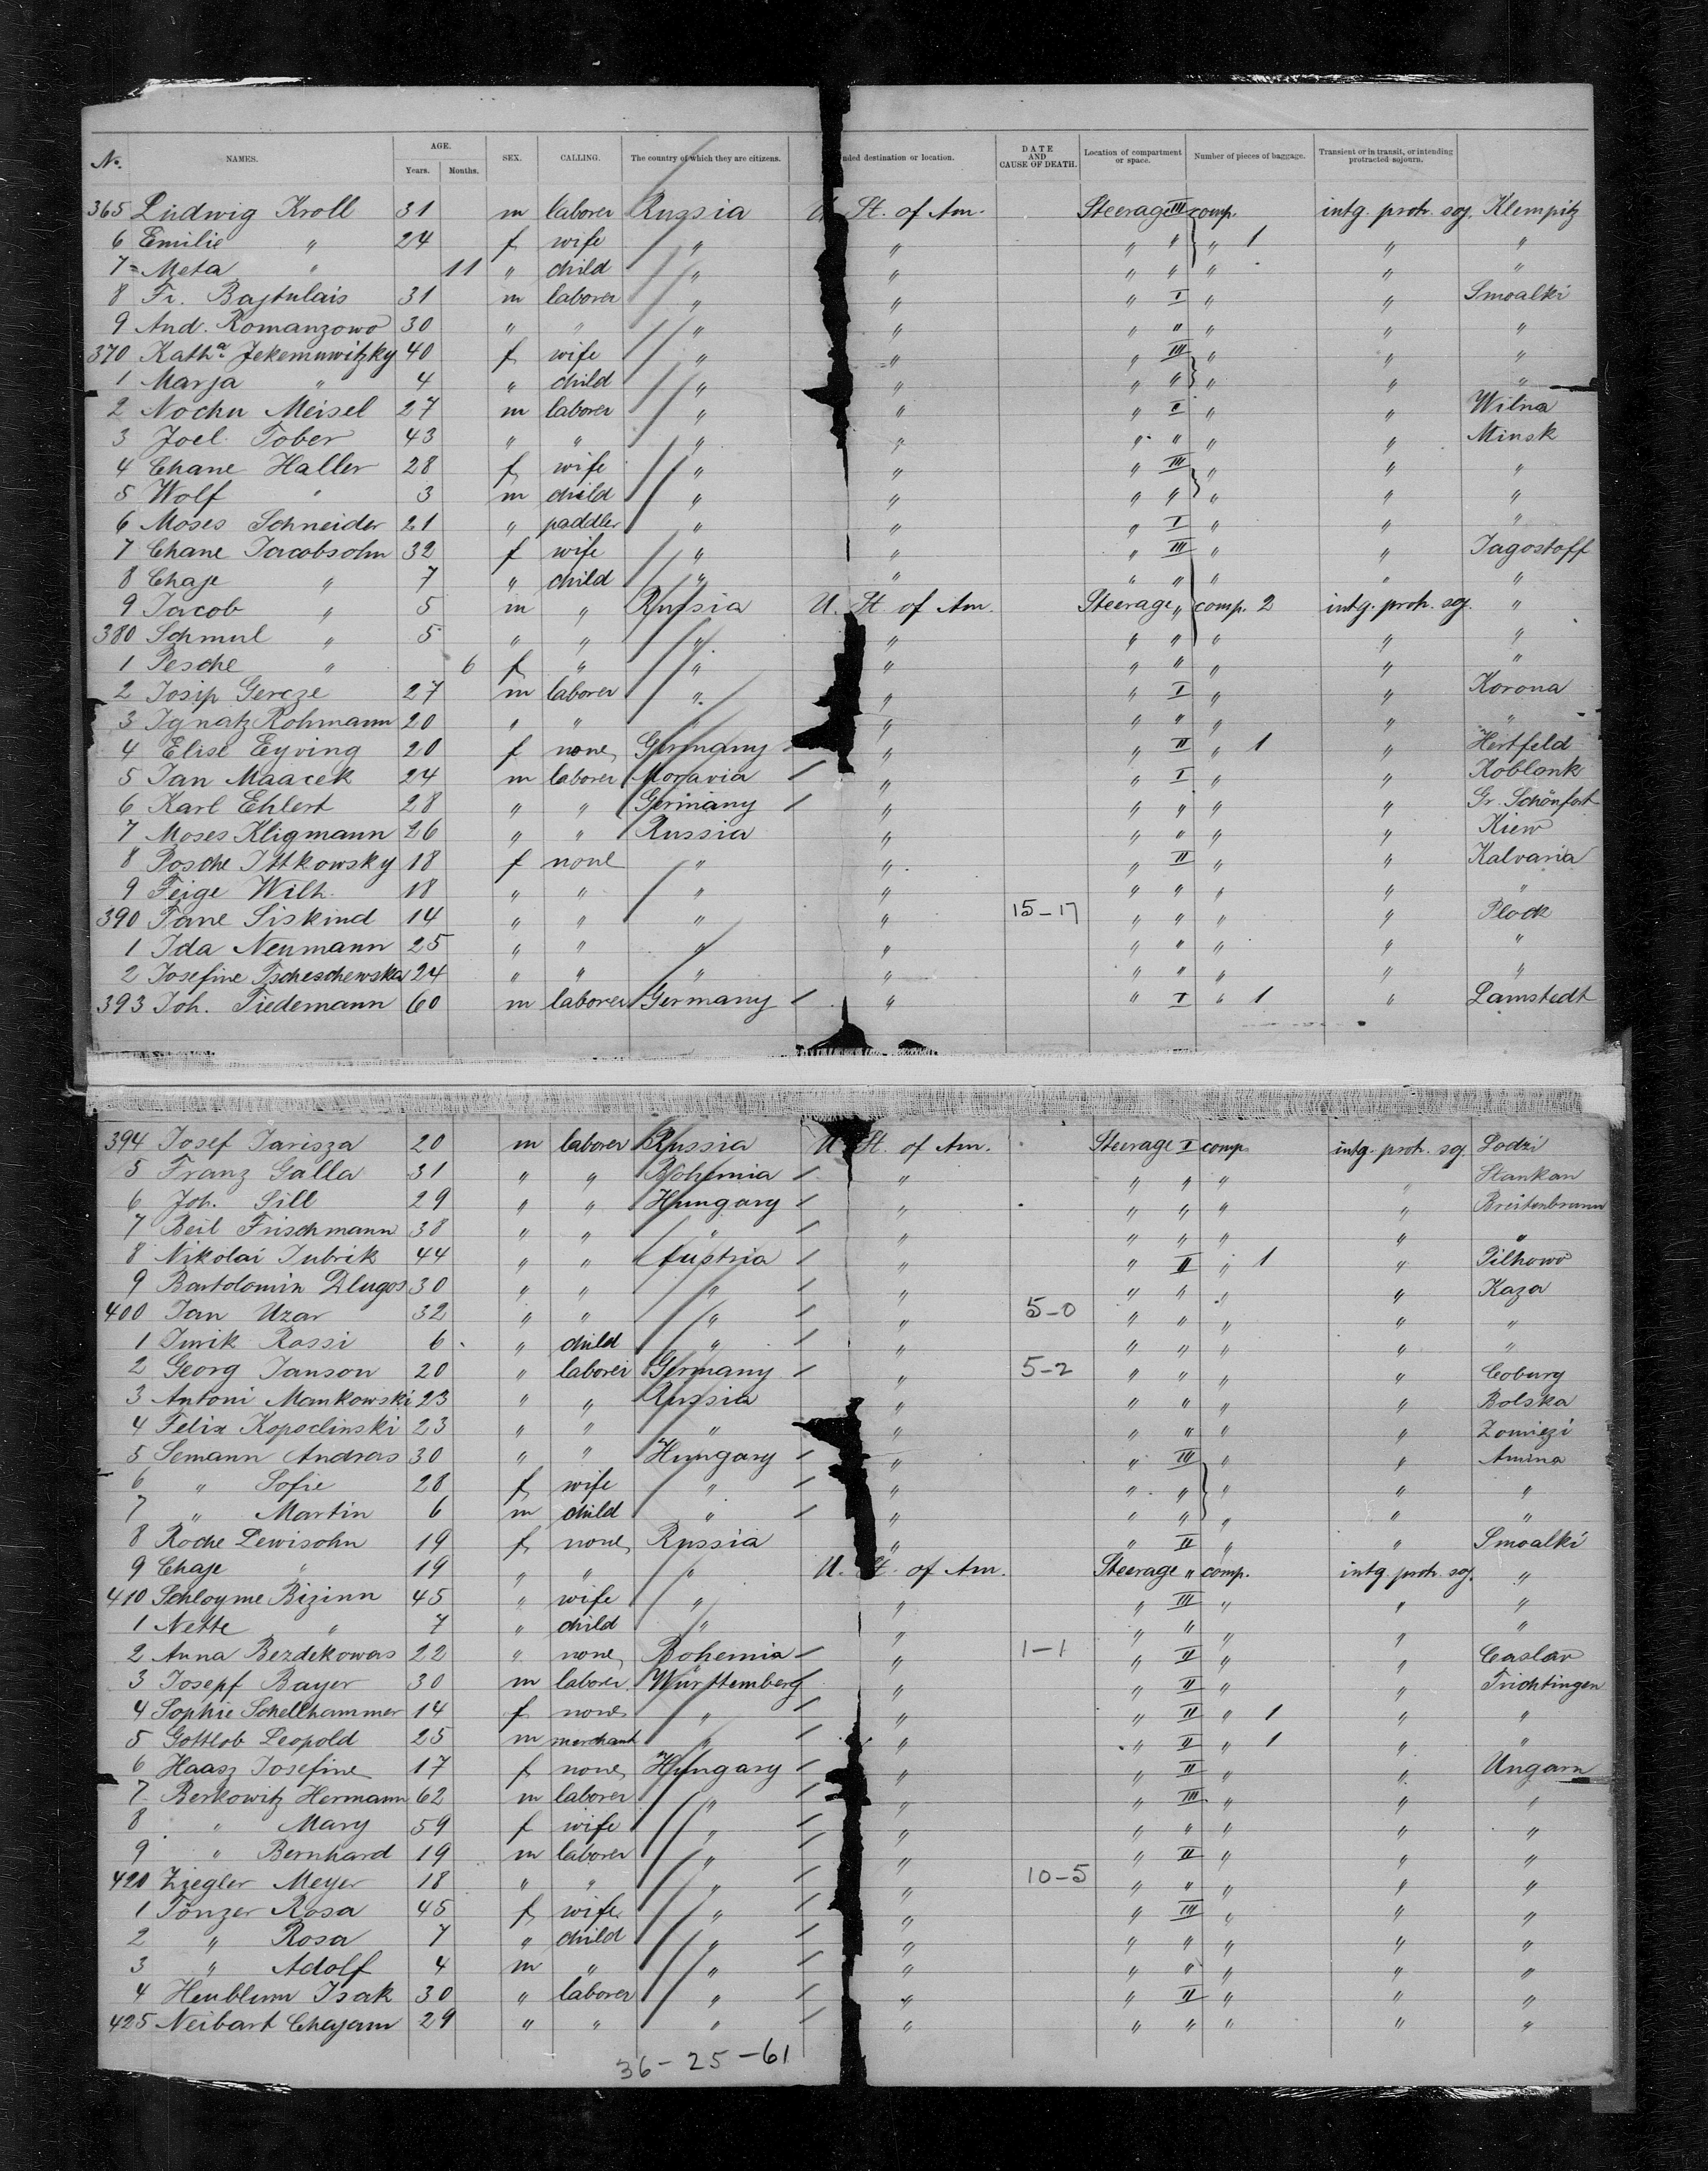 No. NAMES. AGE. Years. Months. SEX. CALLING. The country of which they are citizens. nded destination or location. DATE AND CAUSE OF DEATH. Location of compartment or space. Number of pieces of baggage. Transient or in transit, or intending protracted sojourn.
365 Ludwig Kroll 31 m laborer Russia U. St. of Am. Steerage III comp. intg. protr. soj. Klempitz
6 Emilie " 24 f wife " " " " " 1 " "
7 Meta " 11 " child " " " " " " "
8 Fr. Bajtulais 31 m laborer " " " I " " Smoalki
9 And. Romanzowo 30 " " " " " " " " "
370 Katha. Jekemuwitzky 40 f wife " " " III " " "
1 Marja " 4 " child " " " " " " "
2 Nochu Meisel 27 m laborer " " " I " " Wilna
3 Joel Tober 43 " " " " " " " " Minsk
4 Chane Haller 28 f wife " " " III " " "
5 Wolf " 3 m child " " " " " " "
6 Moses Schneider 21 " paddler " " " I " " "
7 Chane Jacobsohn 32 f wife " " " III " " Jagostoff
8 Chaje " 7 " child " " " " " " "
9 Jacob " 5 m " Russia U. St. of Am. Steerage " comp. 2 intg. protr. soj. "
380 Schmul " 5 " " " " " " " " "
1 Pesche " 6 f " " " " " " " "
2 Josip Gercze 27 m laborer " " " I " " Korona
3 Ignatz Rohmann 20 " " " " " " " " "
4 Elise Eyving 20 f none Germany " " II " 1 " Hertfeld
5 Jan Maacek 24 m laborer Moravia " " I " " Koblank
6 Karl Ehlert 28 " " Germany " " " " " Gr. Schönfort
7 Moses Kligmann 26 " " Russia " " " " " Kiew
8 Posche Ittkowsky 18 f none " " " II " " Kalvaria
9 Feige Wilh. 18 " " " " " " " " "
390 Tane Siskind 14 " " " " 15-17 " " " " Plock
1 Ida Neumann 25 " " " " " " " " "
2 Josefine Pscheschewska 24 " " " " " " " " "
393 Joh. Tiedemann 60 m laborer Germany " " I " 1 " Lamstedt
394 Josef Jarisza 20 m laborer Russia U. St. of Am. Steerage I comp. intg. protr. soj. Lodzi
5 Franz Galla 31 " " Bohemia " " " " " Stankau
6 Joh. Sill 29 " " Hungary " " " " " Breitenbrunn
7 Beil Frischmann 38 " " " " " " " " "
8 Nikolai Jubrik 44 " " Austria " " II " 1 " Pilhowo
9 Bartolomin Dlugos 30 " " " " " " " " Kaza
400 Jan Uzar 32 " " " " 5-0 " " " " "
1 Jurik Rossi 6 " child " " " " " " "
2 Georg Janson 20 " laborer Germany " 5-2 " " " " Coburg
3 Antoni Mankowski 23 " " Russia " " " " " Bolska
4 Felix Kopoclinski 23 " " " " " " " " Zomiezi
5 Semann Andras 30 " " Hungary " " III " " Amina
6 " Sofie 28 f wife " " " " " " "
7 " Martin 6 m child " " " " " " "
8 Roche Lewisohn 19 f none Russia " " II " " Smoalki
9 Chaje " 19 " " " U. St. of Am. Steerage " comp. intg. protr. soj. "
410 Schloyme Bizinn 45 " wife " " " III " " "
1 Nette " 7 " child " " " " " " "
2 Anna Bezdekowas 22 " none Bohemia " 1-1 " II " " Caslav
3 Josepf Bayer 30 m laborer Württemberg " " II " " Trichtingen
4 Sophie Schellhammer 14 f none " " " II " 1 " "
5 Gottlob Leopold 25 m merchant " " " II " 1 " "
6 Haasz Josefine 17 f none Hungary " " II " " Ungarn
7 Berkowitz Hermann 62 m laborer " " " III " " "
8 " Mary 59 f wife " " " " " " "
9 " Bernhard 19 m laborer " " " II " " "
420 Ziegler Meyer 18 " " " " 10-5 " " " " "
1 Tönzer Rosa 45 f wife " " " III " " "
2 " Rosa 7 " child " " " " " " "
3 " Adolf 4 m " " " " " " " "
4 Heublum Isak 30 " laborer " " " II " " "
425 Neibart Chajam 29 " " " " " " " " "
36-25-61